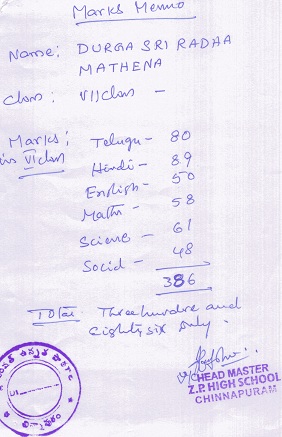 Marks Memo
Name: DURGA SRI RADHA
MATHENA
Class: VII Class -
Marks:
in VI class
Telugu - 80
Hindi - 89
English - 50
Maths - 58
Science - 61
Social - 48
386
Total Three hundred and
eighty six only.
HEAD MASTER
Z.P. HIGH SCHOOL
CHINNAPURAM